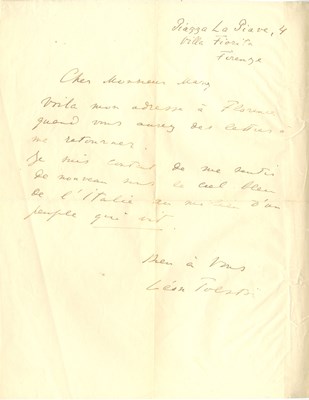 Piazza La Piave, 4
Villa Fiorita
Firenze
Cher Monsieur
Voila mon adresse à Florence
quand vous aurez des lettres à
me retourner.
Je suis content de me sentir
de nouveau sous le ciel bleu
de l'Italie au milieu d'un
peuple qui vit.
Bien à Vous
Léon Tolstoï